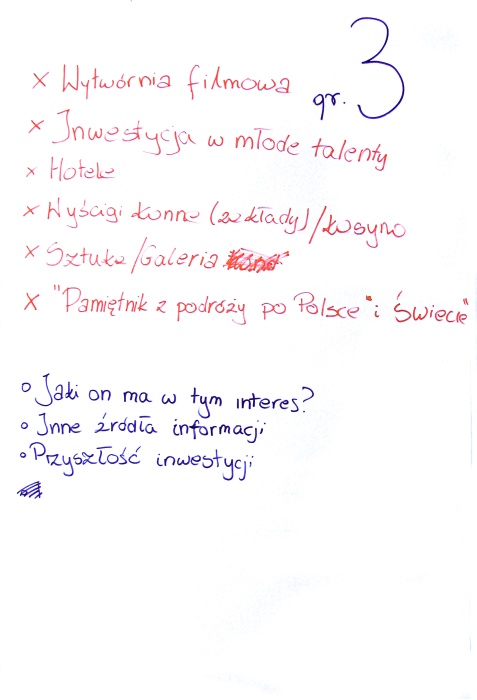 gr. 3
x Wytwórnia filmowa
x Inwestycja w młode talenty
x Hotele
x Wyścigi konne (zakłady)/kasyno
x Sztuka/Galeria
x "Pamiętnik z podróży po Polsce" i Świecie"
o Jaki on ma w tym interes?
o Inne źródła informacji
o Przyszłość inwestycji